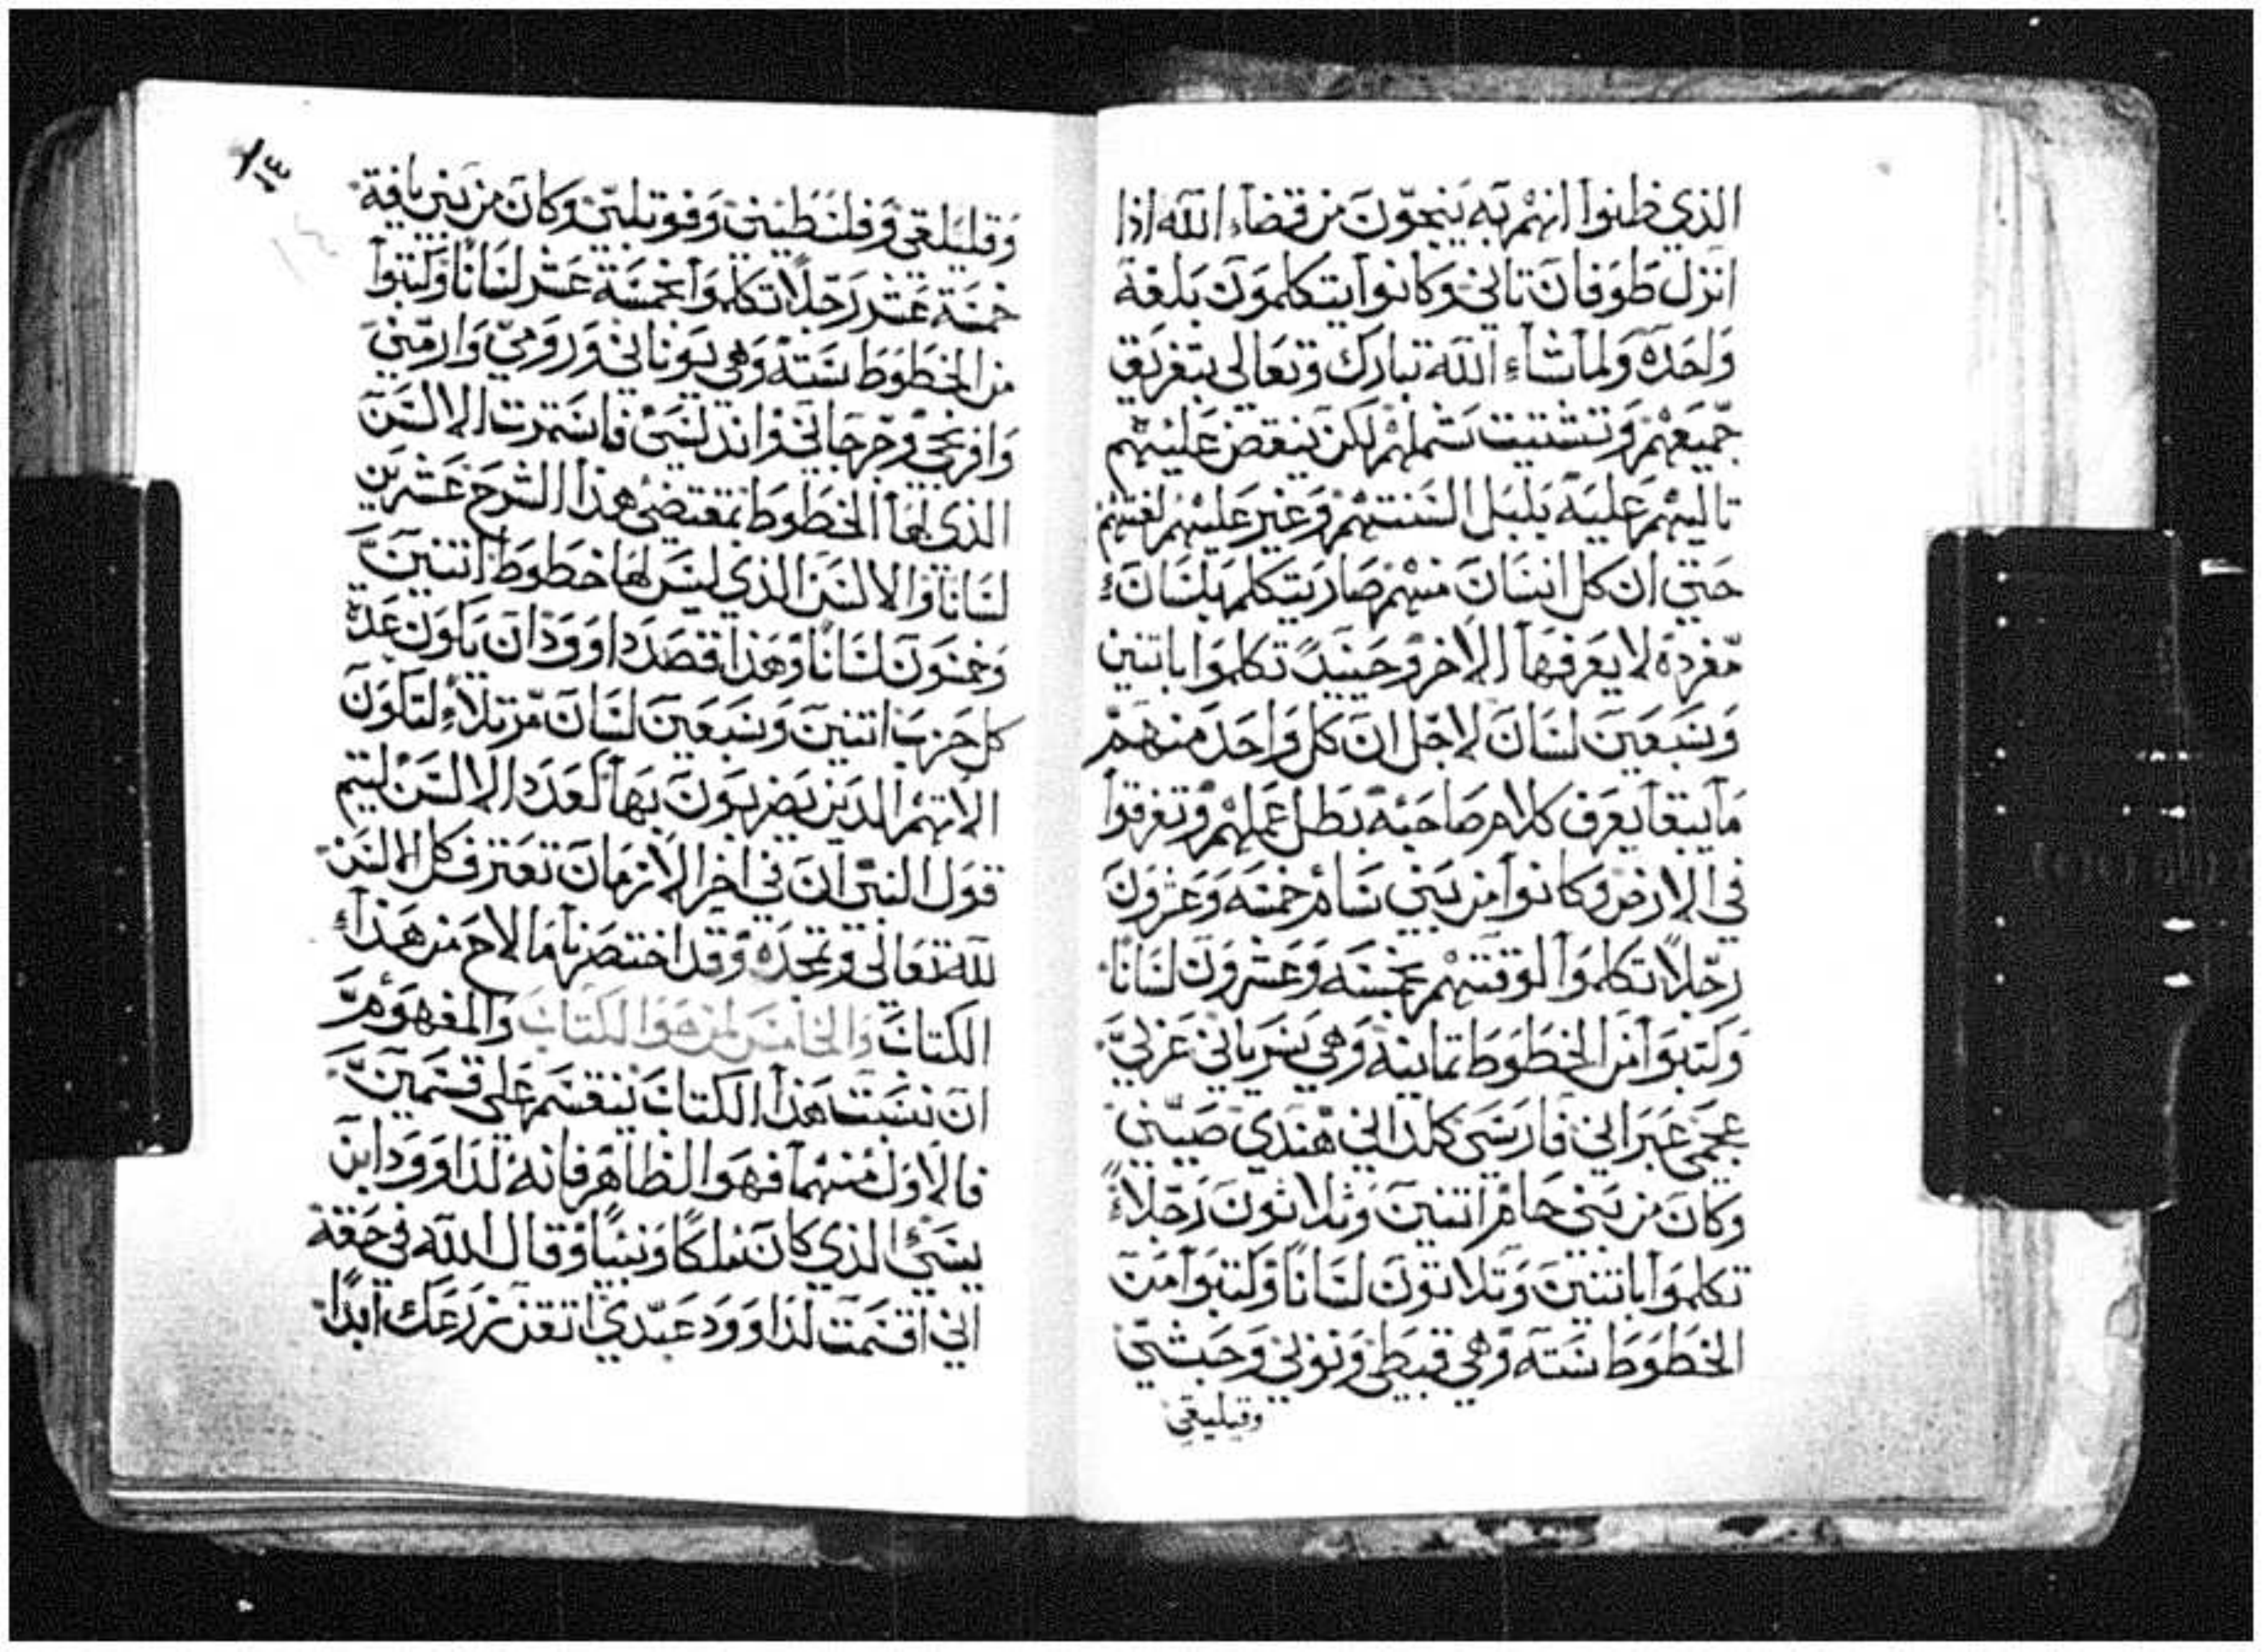 الذي ظنوا انهم به ينجون من قضاء الله اذا
انزل طوفان تاني وكانوا يتكلمون بلغة
واحده ولما شاء الله تبارك وتعالى بتفريق
جميعهم وتشتيت شملهم لكن ينقض عليهم
تاليهم عليه بلبل السنتهم وغير عليهم لغتهم
حتي ان كل انسان منهم صار يتكلم بلسان
مفرده لا يعرفها الاخر وحينيد تكلموا باتنين
وسبعين لسان لاجل ان كل واحد منهم
ما يبقا يعرف كلام صاحبه بطل عملهم وتفرقوا
في الارض وكانوا من بني سام خمسه وعشرون
رجلا تكلموا لوقتهم بخمسه وعشرون لسانا
وكتبوا من الخطوط تمانيه وهي سرياني عربي
عجمي عبراني فارسي كلداني هندي صيني
وكان من بني حام اتنين وتلاتون رجلاء
تكلموا باتنين وتلاتون لسانا وكتبوا من
الخطوط سته وهي قبطي ونوبي وحبشي
وقيليقي
وقليلقي وفلسطيني وفوتيلي وكان من بني يافة
خمسة عشر رجلا تكلموا بخمسة عشر لسانا وكتبوا
من الخطوط سته وهي يوناني ورومي وارمني
وافرنجي وجرجاني واندلسي فاستمرت الالسن
الذي لها الخطوط بمقتضى هذا الشرح عشرين
لسانا والالسن الذي ليس لها خطوط اتنين
وخمسون لسانا وهذا قصد داوود ان يكون عدة
كل حزب اتنين وسبعين لسان مرتلاء لتكون
الاتهم الدين يضربون بها كعدد الالسن ليتم
قول النبي ان في اخر الازمان تعترف كل الالسن
لله تعالى وتمجده وقد اختصرنا ما لاح من هذا
الكتاب والخامس لمن هو الكتاب والمفهوم
ان نسبت هذا الكتاب ينقسم على قسمين
فالاول منهما فهو الظاهر فانه لداوود ابن
يسي الذي كان ملكا ونبيا وقال الله في حقه
اني اقسمت لداوود عبدي اتقن زرعك ابدا